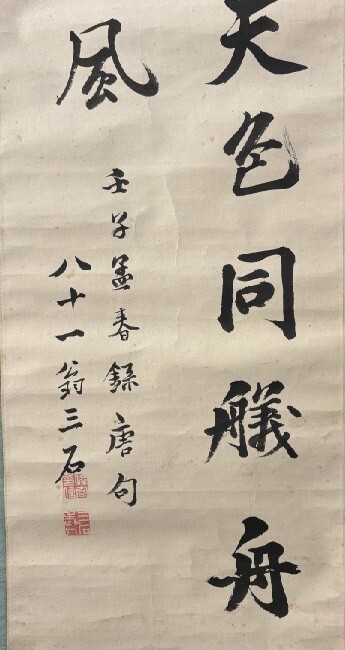 天色同艤舟
風
壬子孟春録唐句
八十一翁三石